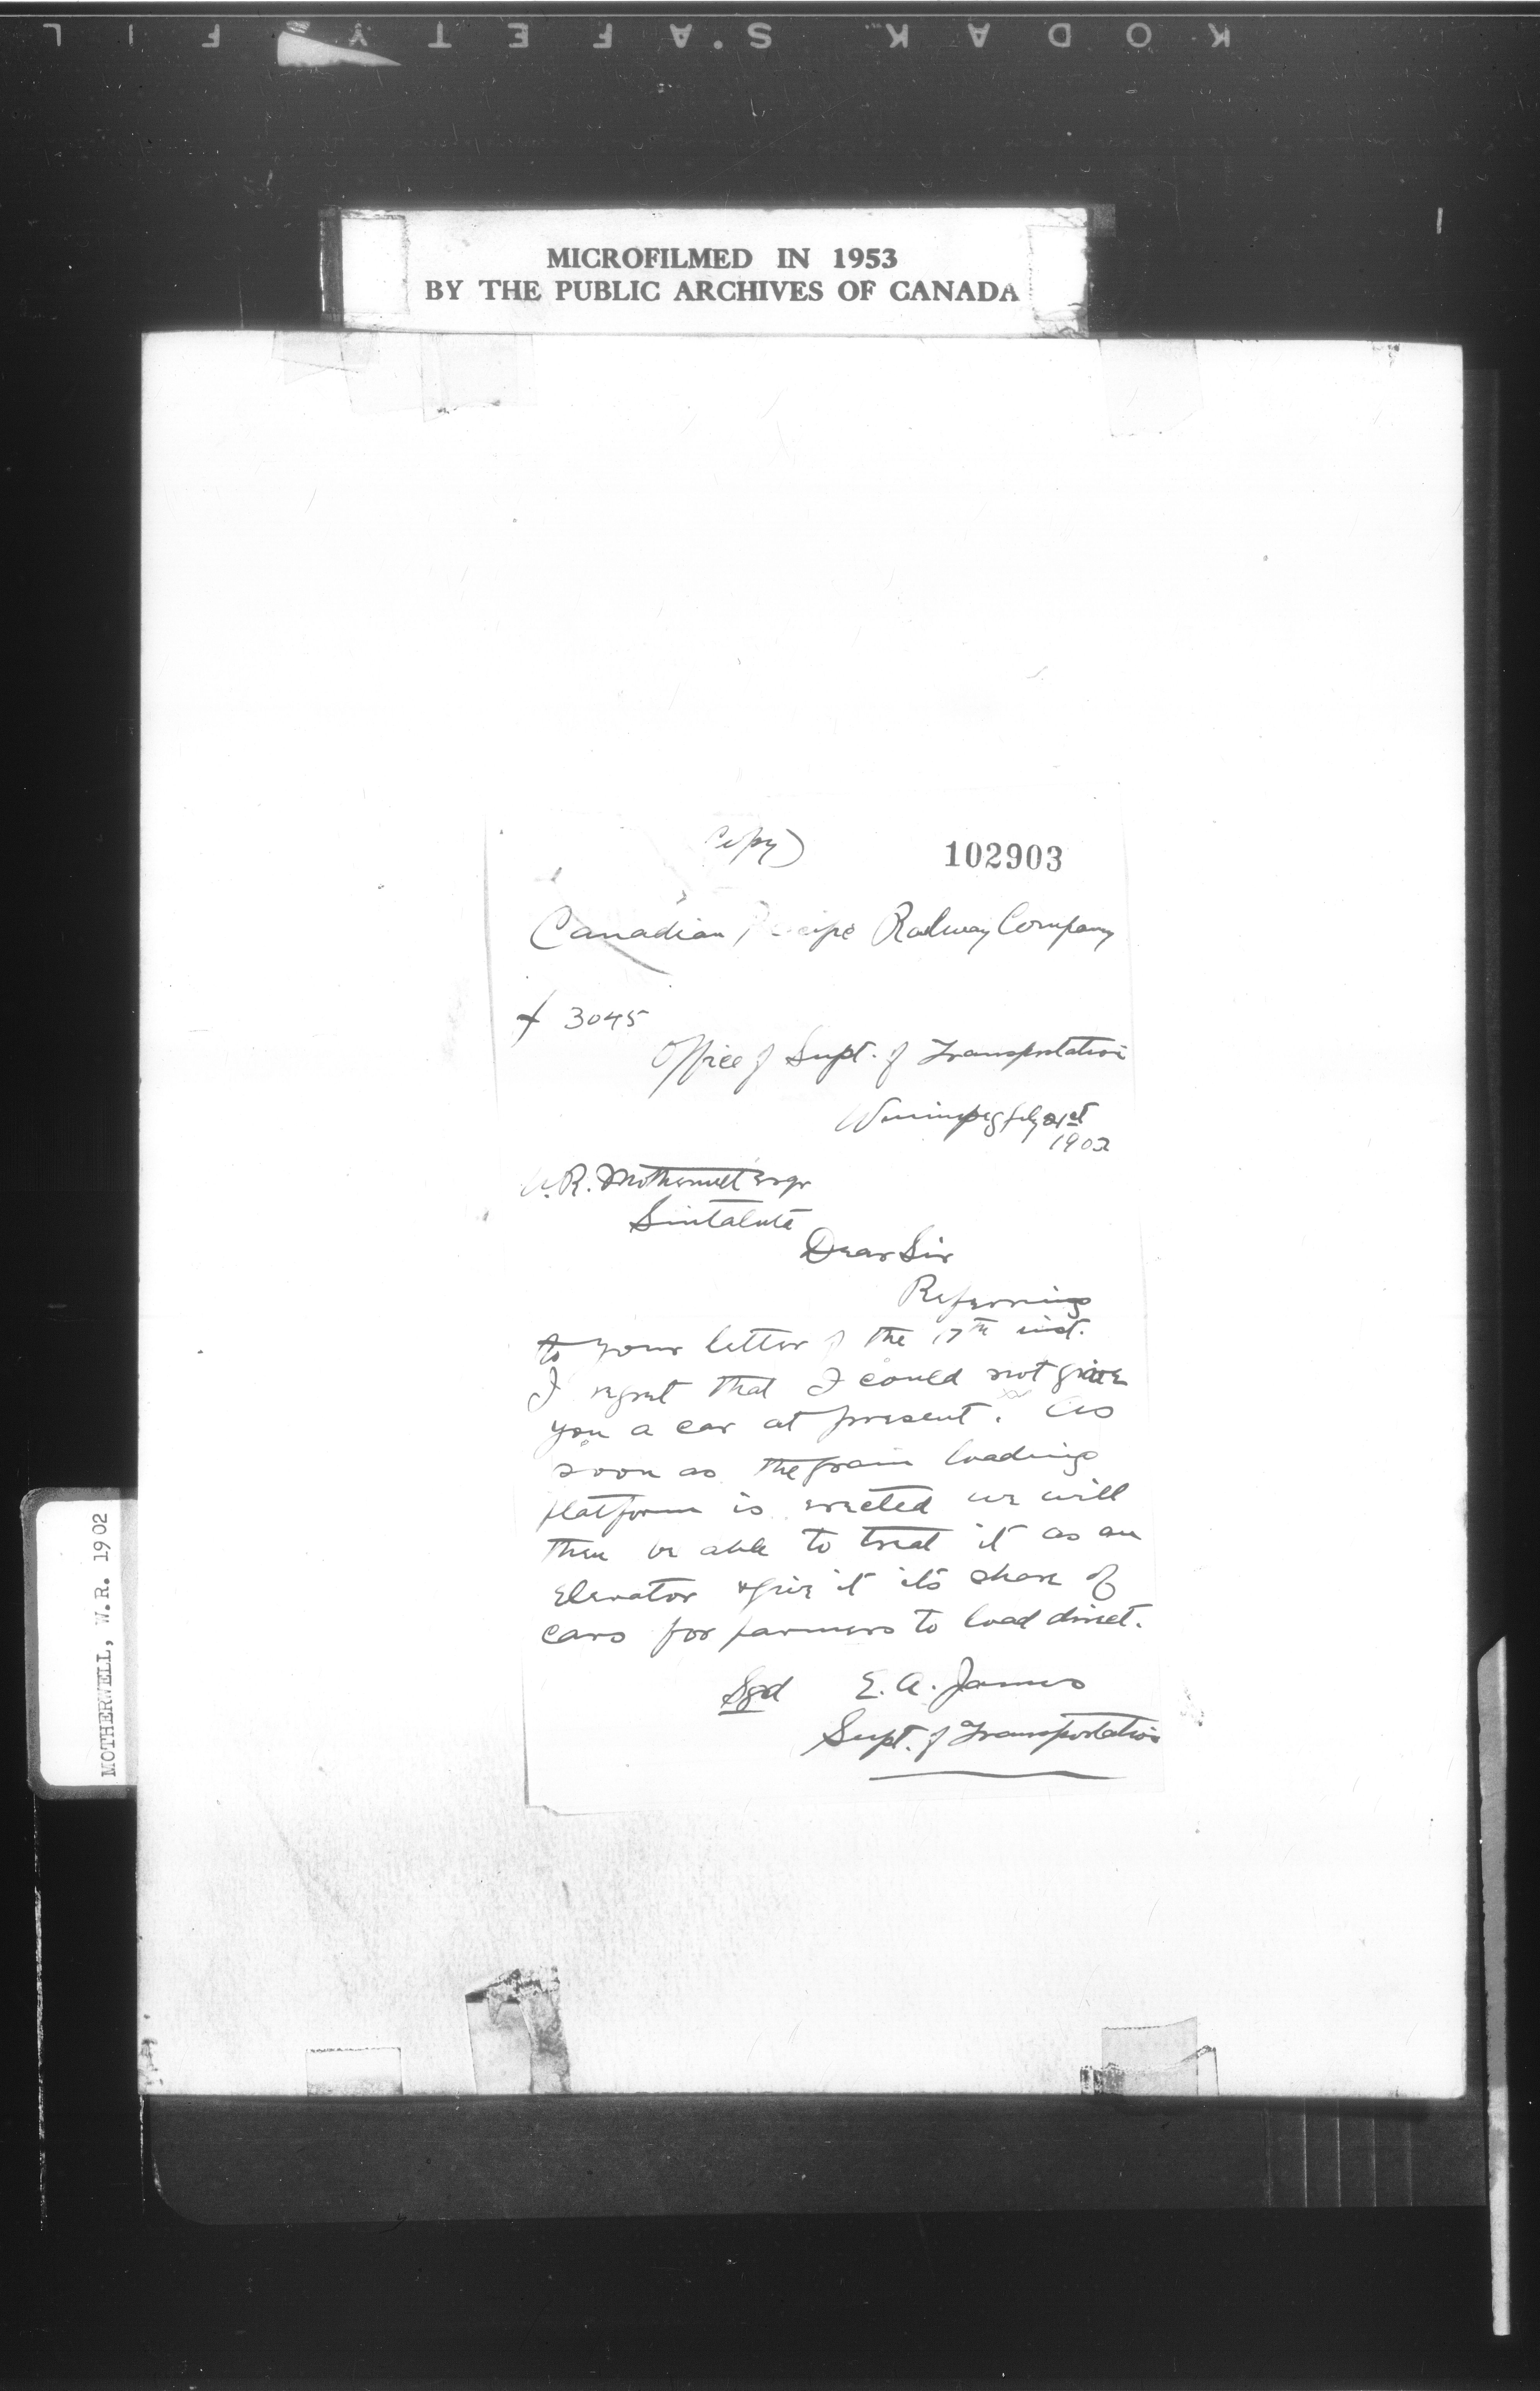 KODAK SAFETY FIL
MICROFILMED IN 1953
BY THE PUBLIC ARCHIVES OF CANADA
Copy)
102903
Canadian Pacific Railway Company
3045
Office of Supt. of Transportation
Winnipeg 21st
1902
W.R. Motherwell Esqr
Sintaluta
Dear Sir
Referring
to your letter of the 17th inst.
I regret that I could not give
you a car at present. As
soon as the grain loading
platform is erected we will
then be able to treat it as an
elevator & give it its share of
cars for farmers to load direct.
Sgd E. A. James
Supt. of Transportation
MOTHERWELL, W.R. 1902